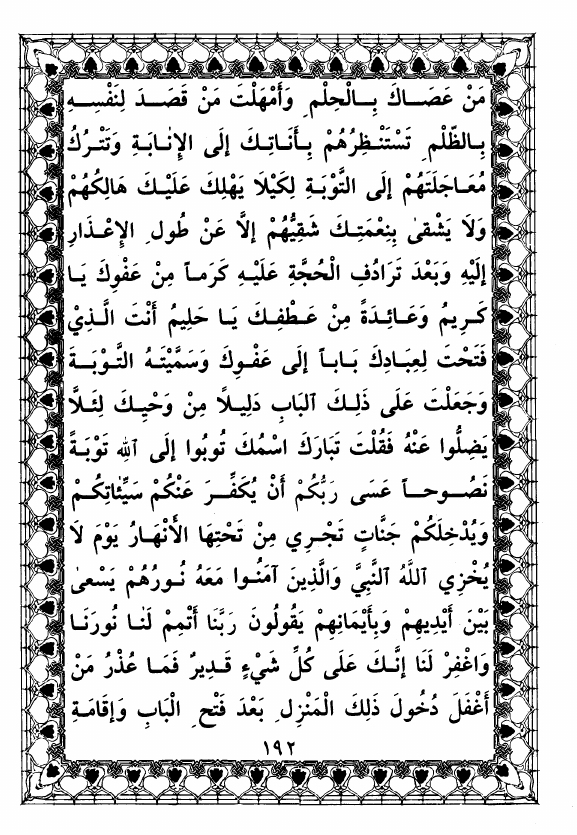 مَنْ عَصَاكَ بِالْحِلْمِ وَأَمْهَلْتَ مَنْ قَصَدَ لِنَفْسِهِ
بِالظُّلْمِ تَسْتَنْظِرُهُمْ بِأَنَاتِكَ إِلَى الإِنَابَةِ وَتَتْرُكُ
مُعَاجَلَتَهُمْ إِلَى التَّوْبَةِ لِكَيْلَا يَهْلِكَ عَلَيْكَ هَالِكُهُمْ
وَلَا يَشْقىٰ بِنِعْمَتِكَ شَقِيُّهُمْ إِلَّا عَنْ طُولِ الإِعْذَارِ
إِلَيْهِ وَبَعْدَ تَرَادُفِ الْحُجَّةِ عَلَيْهِ كَرَماً مِنْ عَفْوِكَ يَا
كَرِيمُ وَعَائِدَةً مِنْ عَطْفِكَ يَا حَلِيمُ أَنْتَ الَّذِيْ
فَتَحْتَ لِعِبَادِكَ بَاباً إِلَى عَفْوِكَ وَسَمَّيْتَهُ التَّوْبَةَ
وَجَعَلْتَ عَلَى ذَلِكَ الْبَابِ دَلِيلاً مِنْ وَحْيِكَ لِئَلَّا
يَضِلُّوا عَنْهُ فَقُلْتَ تَبَارَكَ اسْمُكَ تُوبُوا إِلَى اللهِ تَوْبَةً
نَصُوحاً عَسَى رَبُّكُمْ أَنْ يُكَفِّرَ عَنْكُمْ سَيِّئَاتِكُمْ
وَيُدْخِلَكُمْ جَنَّاتٍ تَجْرِي مِنْ تَحْتِهَا الأَنْهَارُ يَوْمَ لَا
يُخْزِي اللَّهُ النَّبِيَّ وَالَّذِينَ آمَنُوا مَعَهُ نُورُهُمْ يَسْعىٰ
بَيْنَ أَيْدِيهِمْ وَبِأَيْمَانِهِمْ يَقُولُونَ رَبَّنَا أَتْمِمْ لَنَا نُورَنَا
وَاغْفِرْ لَنَا إِنَّكَ عَلَى كُلِّ شَيْءٍ قَدِيرٌ فَمَا عُذْرُ مَنْ
أَغْفَلَ دُخُولَ ذَلِكَ الْمَنْزِلِ بَعْدَ فَتْحِ الْبَابِ وَإِقَامَةِ
١٩٢